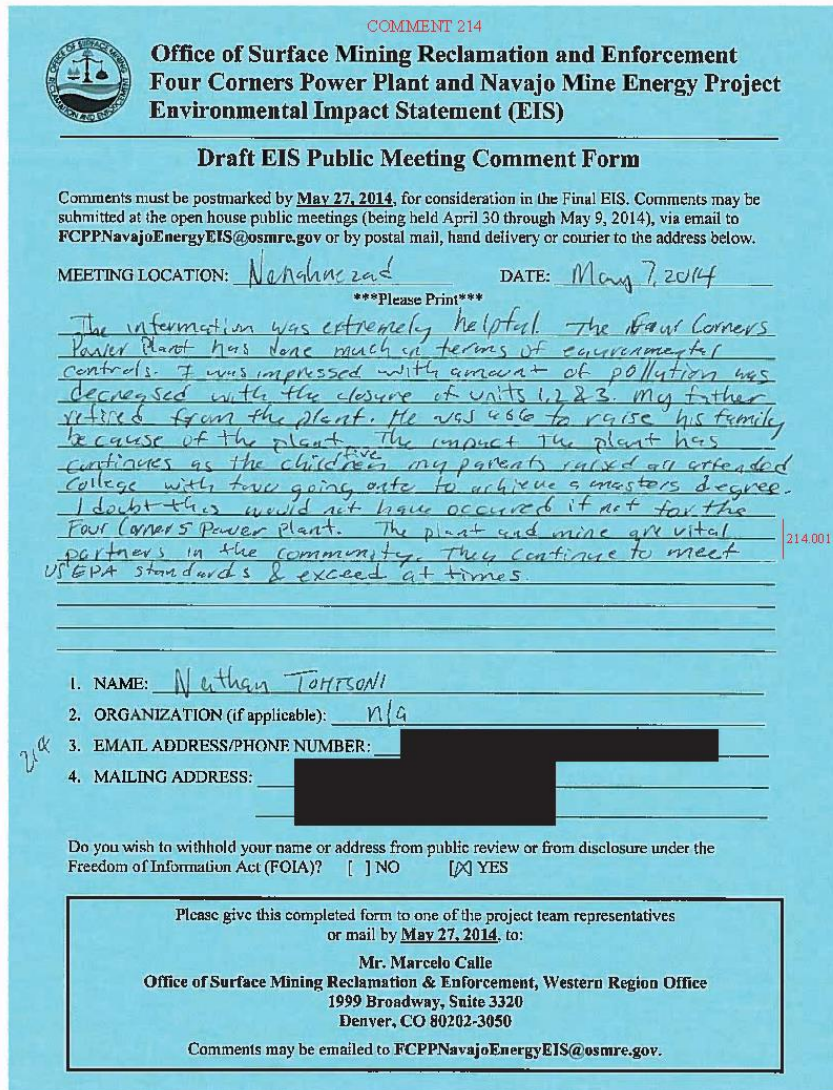 COMMENT 214
OFFICE OF SURFACE MINING
RECLAMATION AND ENFORCEMENT
Office of Surface Mining Reclamation and Enforcement
Four Corners Power Plant and Navajo Mine Energy Project
Environmental Impact Statement (EIS)
Draft EIS Public Meeting Comment Form
Comments must be postmarked by May 27, 2014, for consideration in the Final EIS. Comments may be
submitted at the open house public meetings (being held April 30 through May 9, 2014), via email to
FCPPNavajoEnergyEIS@osmre.gov or by postal mail, hand delivery or courier to the address below.
MEETING LOCATION: Nenahnezad DATE: May 7, 2014
***Please Print***
The information was extremely helpful. The Four Corners
Power Plant has done much in terms of environmental
controls. I was impressed with amount of pollution was
decreased with the closure of units 1, 2 & 3. My father
retired from the plant. He was able to raise his family
because of the plant. The impact the plant has
continues as the five children my parents raised all attended
college with two going onto to achieve a masters degree.
I doubt this would not have occured if not for the
Four Corners Power Plant. The plant and mine are vital
214.001
partners in the community. They continue to meet
US EPA standards & exceed at times.
1. NAME: Nathan TOHTSONI
2. ORGANIZATION (if applicable): n/a
3. EMAIL ADDRESS/PHONE NUMBER:
4. MAILING ADDRESS:
Do you wish to withhold your name or address from public review or from disclosure under the
Freedom of Information Act (FOIA)? [ ] NO [X] YES
Please give this completed form to one of the project team representatives
or mail by May 27, 2014, to:
Mr. Marcelo Calle
Office of Surface Mining Reclamation & Enforcement, Western Region Office
1999 Broadway, Suite 3320
Denver, CO 80202-3050
Comments may be emailed to FCPPNavajoEnergyEIS@osmre.gov.